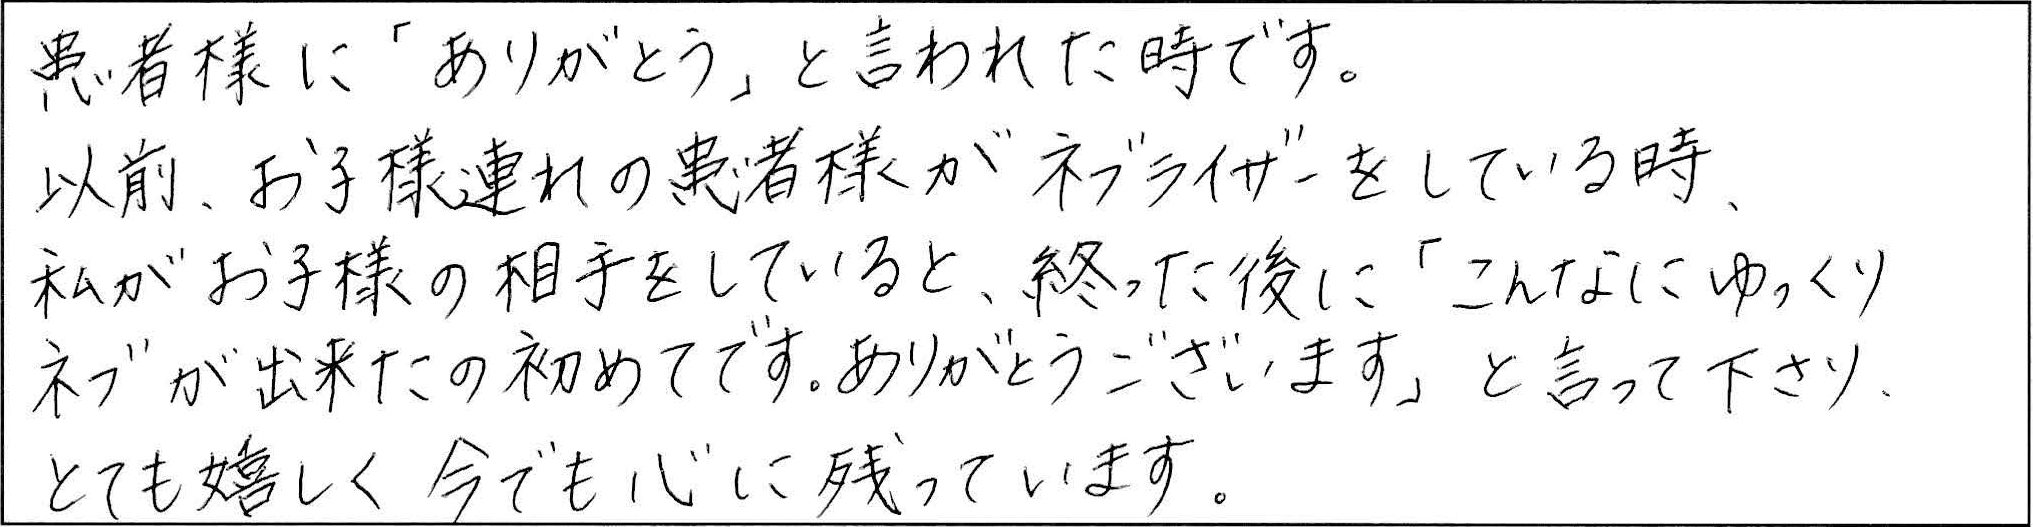 患者様に「ありがとう」と言われた時です。
以前、お子様連れの患者様がネブライザーをしている時、
私がお子様の相手をしていると、終った後に「こんなにゆっくり
ネブが出来たの初めてです。ありがとうございます」と言って下さり、
とても嬉しく今でも心に残っています。